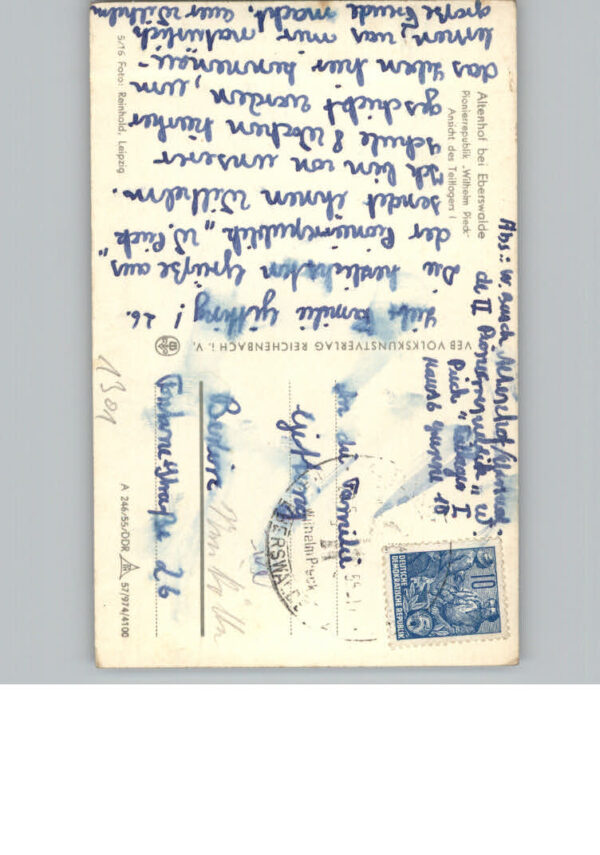 Altenhof bei Eberswalde
Pionierrepublik „Wilhelm Pieck"
Ansicht des Teillagers I
Liebe Familie ! 26.
Die herzlichsten Grüße aus
der Pionierrepublik „W. Pieck"
sendet ihnen Wilhelm.
Ich bin von unserer
schule 8 Wochen hierher
geschickt worden, um
das Leben hier kennenzu-
lernen, was mir natürlich
große Freude macht. euer Wilhelm
5/16 Foto: Reinhold, Leipzig
VEB VOLKSKUNSTVERLAG REICHENBACH i. V.
Abs.: W.
Pionierrepublik „W.
Pieck"
I
Gruppe 18.
An die Familie
Berlin
Fontane-Straße 26
1301
Wilhelm Pieck
EBERSWALDE
10
DEUTSCHE
DEMOKRATISCHE REPUBLIK
A 246/55/DDR 57/974/4100